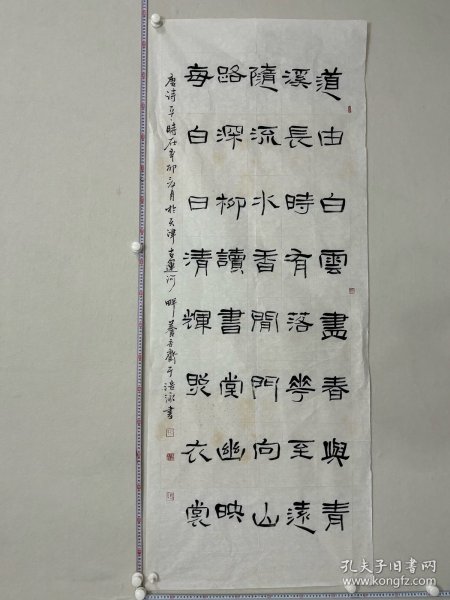 道由白雲盡春與青
溪長時有落花至遠
隨流水香閒門向山
路深柳讀書堂幽映
每白日清輝照衣裳
唐诗 時在辛卯 月於天津古運河畔 書
孔夫子旧书网
www.kongfz.com